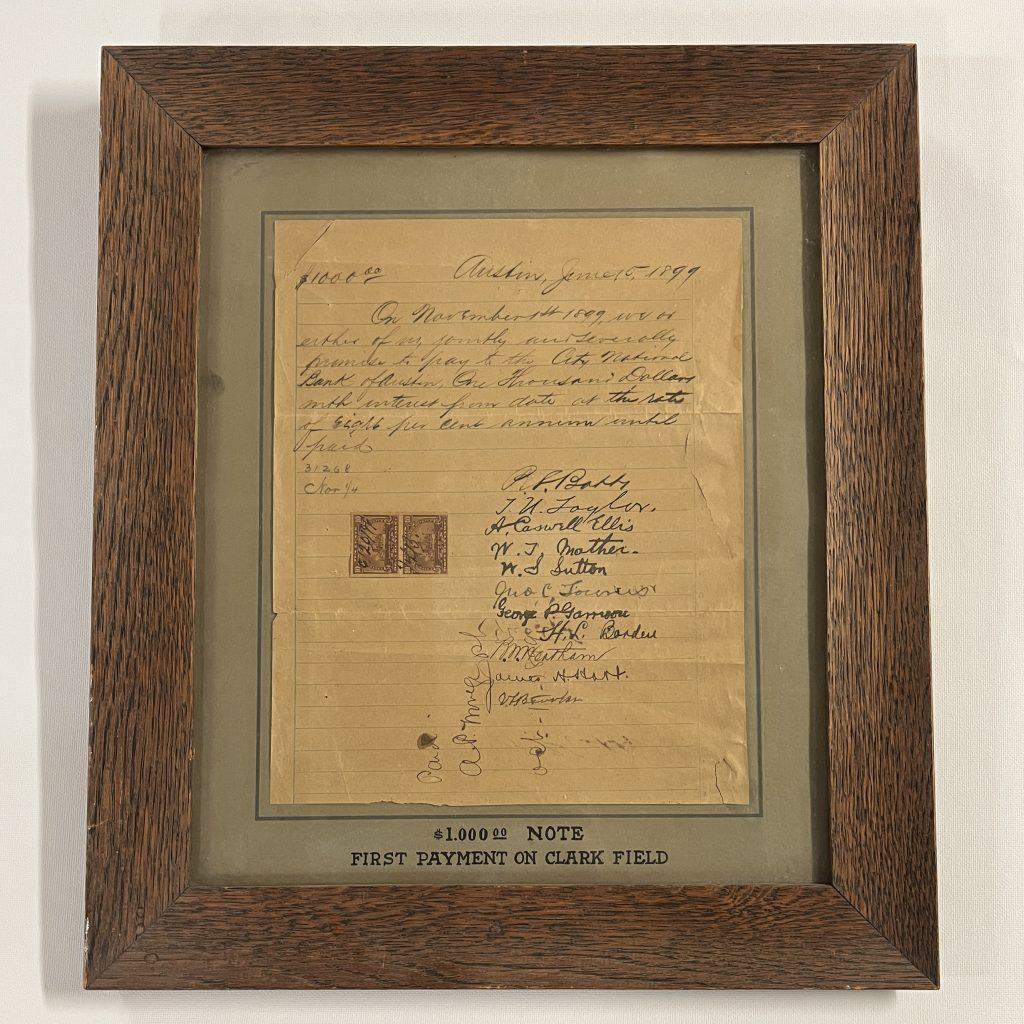 $1000.00 Austin, June 15, 1899
On November 1st 1899, we or
either of us, jointly and severally
promise to pay to the City National
Bank of Austin, One Thousand Dollars
with interest from date at the rate
of Eight per cent annum until
paid
31268
Nov 1/4
T. U. Taylor.
A. Caswell Ellis
W. T. Mather.
W. S. Sutton
Jno C. Townes
George P. Garrison
H. L. Borden
James H. Hart.
Paid
$1.000 00 NOTE
FIRST PAYMENT ON CLARK FIELD